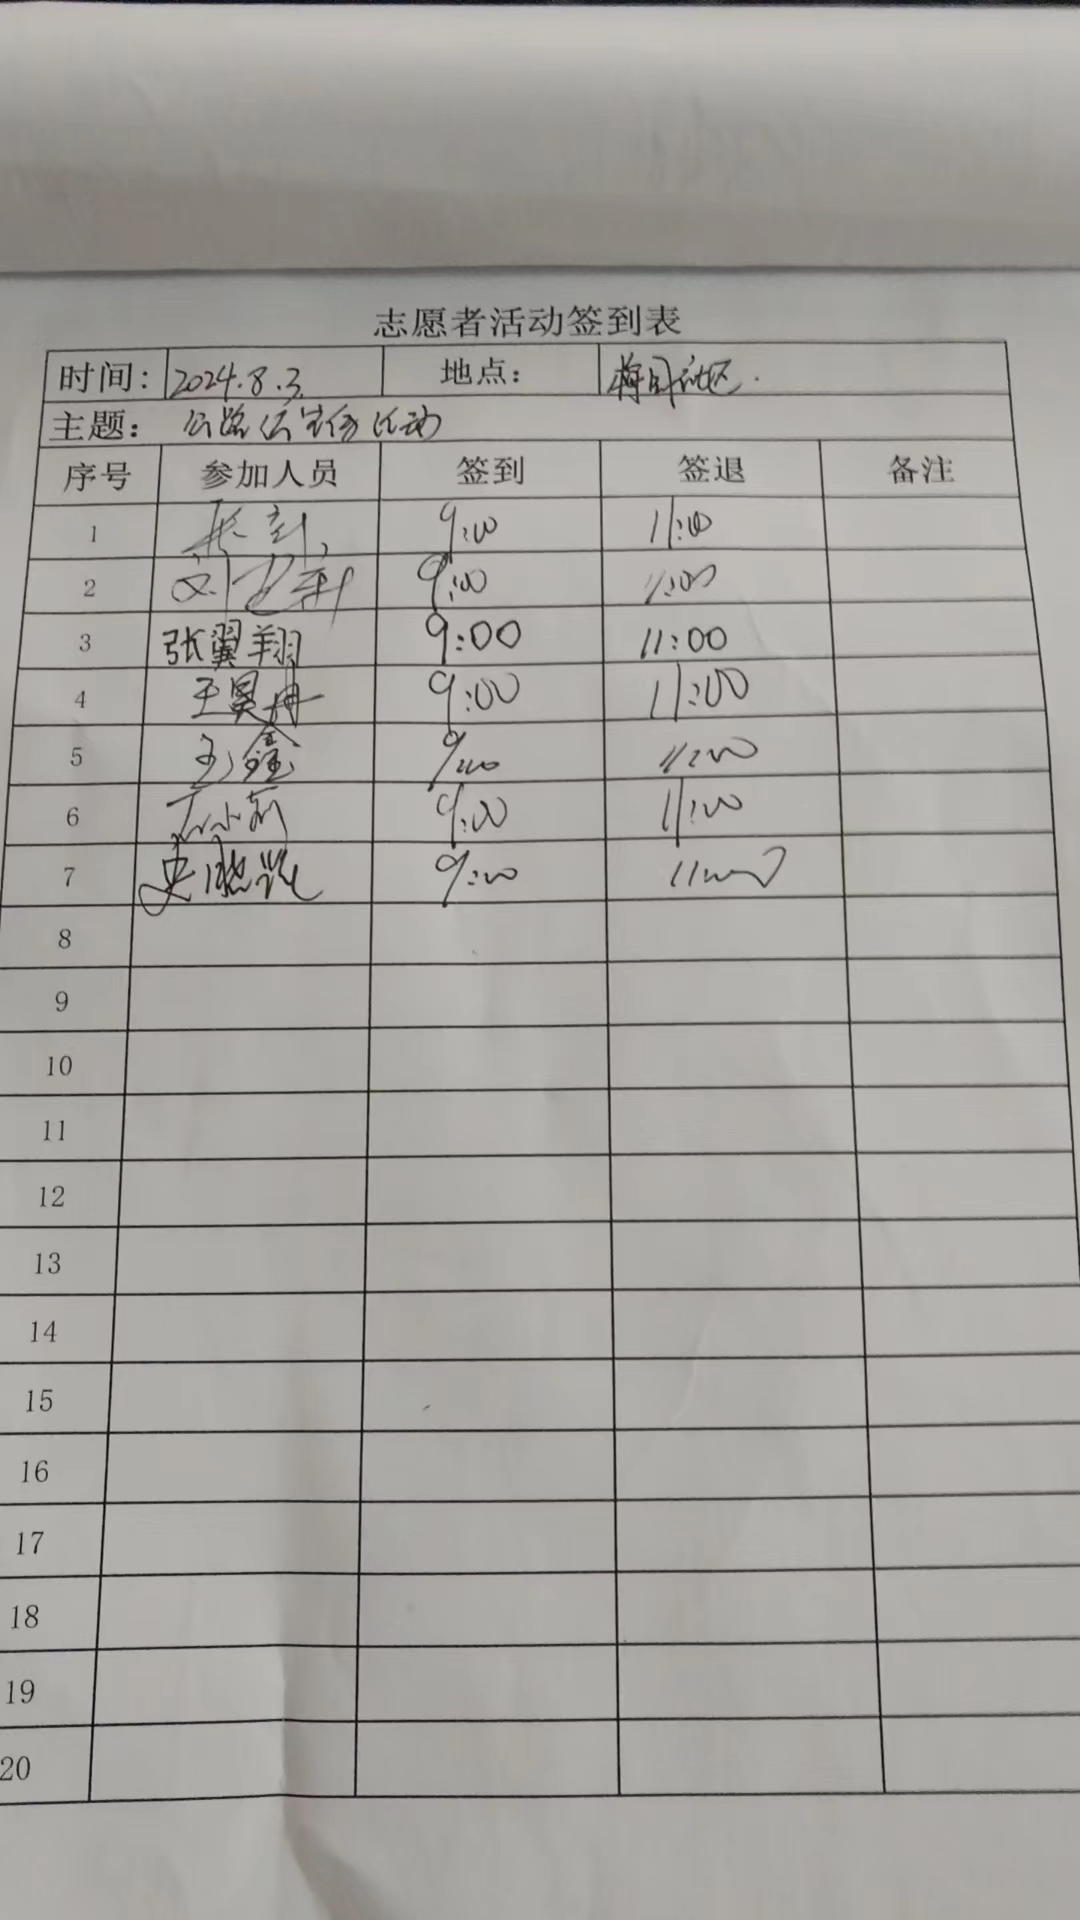 志愿者活动签到表
时间： 2024.8.3. 地点： 社区.
主题： 公路 活动
序号 参加人员 签到 签退 备注
1 9:00 11:00
2 9:00 11:00
3 张翼翔 9:00 11:00
4 王昊丹 9:00 11:00
5 鑫 9:00 11:00
6 小莉 9:00 11:00
7 史晓 9:00 11:00
8
9
10
11
12
13
14
15
16
17
18
19
20